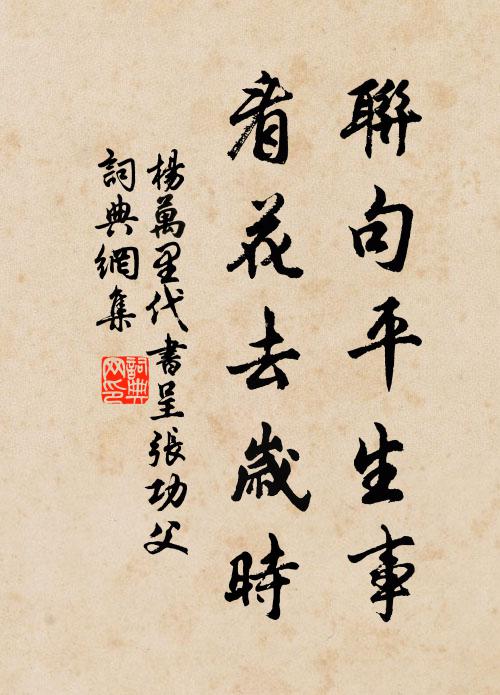 聯句平生事
看花去歲時
楊萬里代書呈張功父
詞典網集
詞典网印